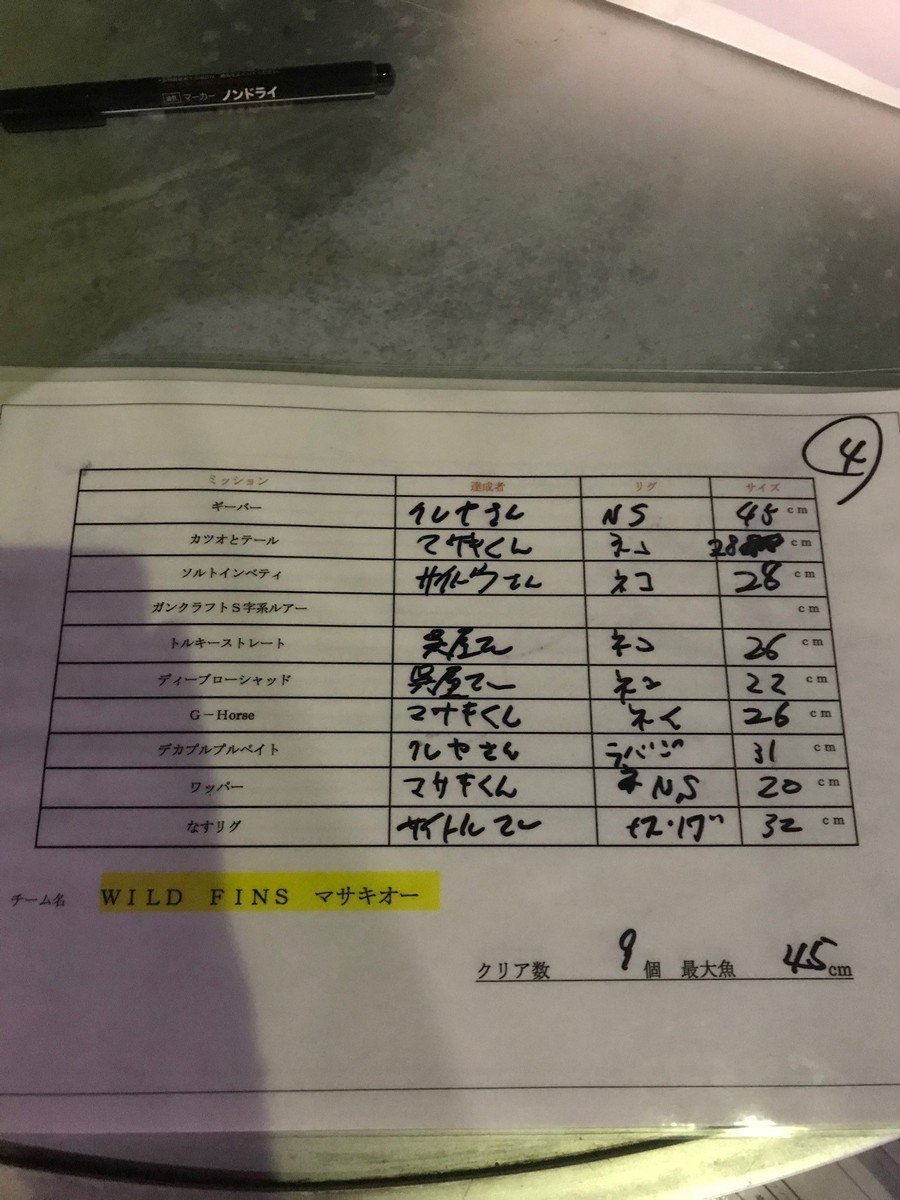 マーカー ノンドライ
4
ミッション 達成者 リグ サイズ
ギーバー クレヤさん NS 45 cm
カツオとテール マサキくん ネコ 28 cm
ソルトインベティ サイトウさん ネコ 28 cm
ガンクラフトS字系ルアー cm
トルキーストレート 呉屋さん ネコ 26 cm
ディープローシャッド 呉屋さん ネコ 22 cm
G-Horse マサキくん 26 cm
デカブルブルベイト クレヤさん ラバジ 31 cm
ワッパー マサキくん NS 20 cm
なすリグ 32 cm
チーム名 WILD FINS マサキオー
クリア数 9 個 最大魚 45 cm